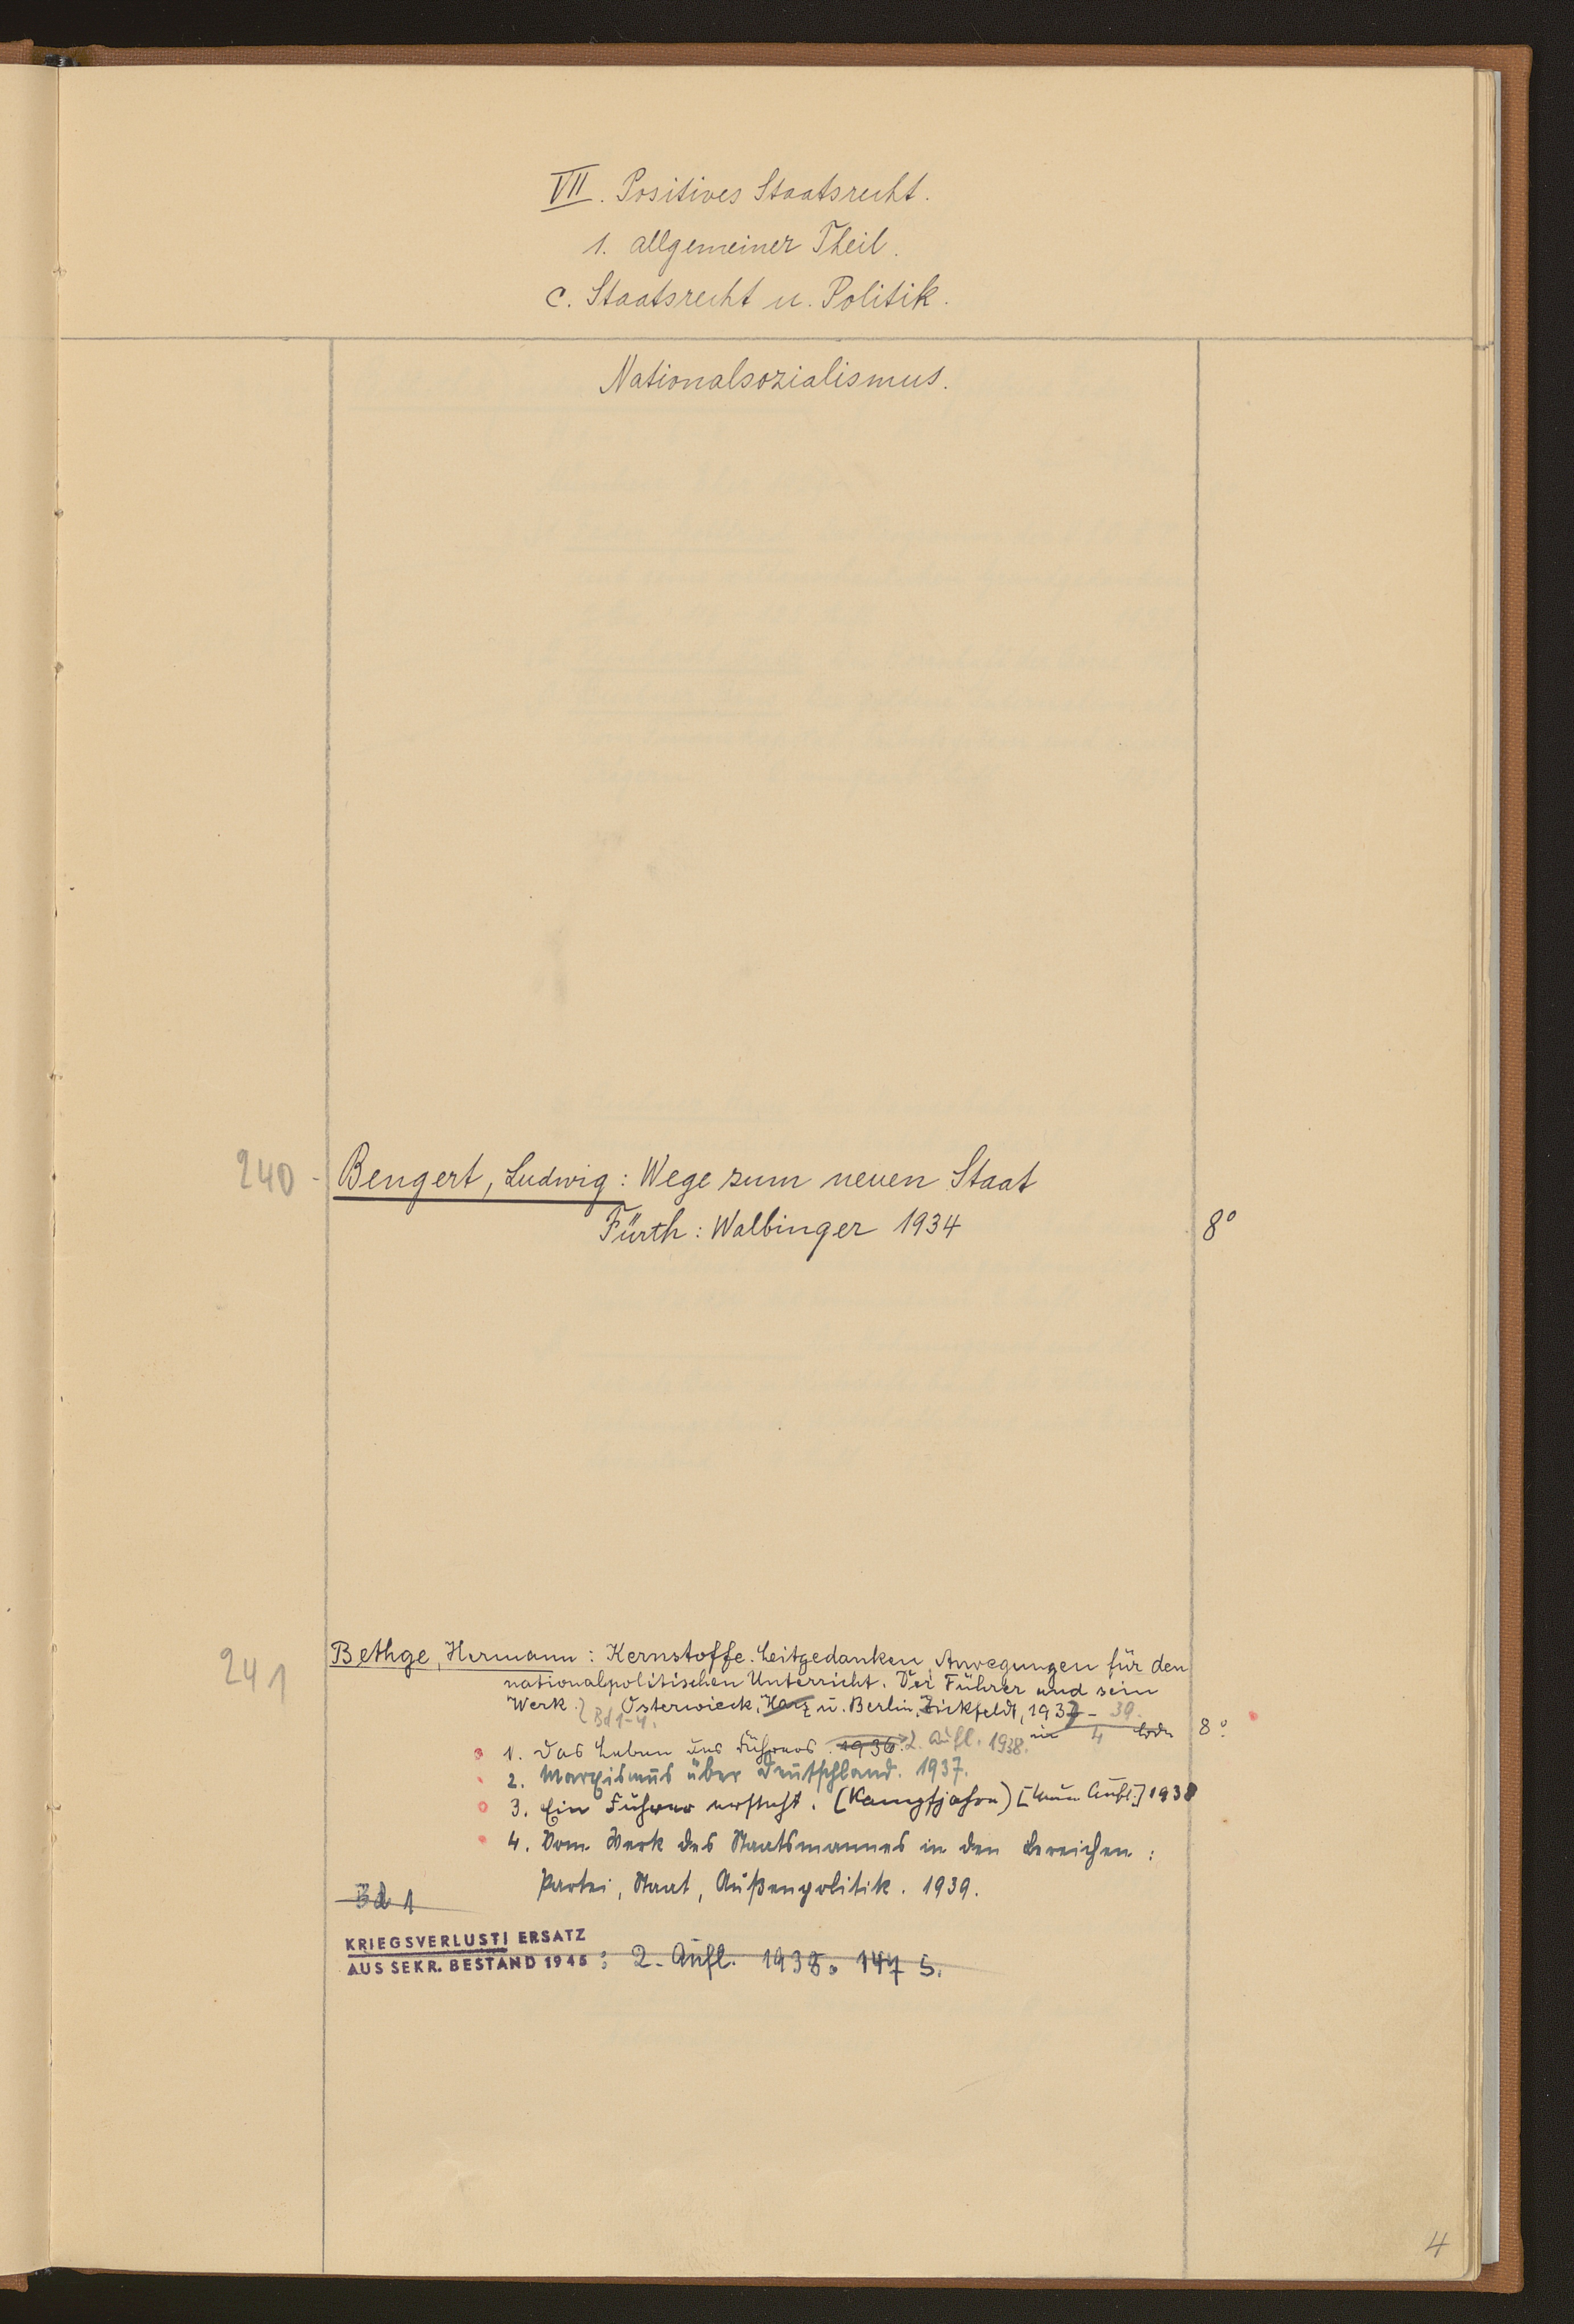 VII. Positives Staatsrecht.
1. allgemeiner Theil.
c. Staatsrecht u. Politik.
Nationalsozialismus.
240 - Bengert, Ludwig: Wege zum neuen Staat
Fürth: Walbinger 1934 8°
241 Bethge, Hermann: Kernstoffe. Leitgedanken, Anregungen für den
nationalpolitischen Unterricht. Der Führer und sein
Werk. Bd 1-4. Osterwieck, Harz u. Berlin, Zickfeldt, 1937-39.
in 4 Bdn 8°
1. Das Leben des Führers. 1936 2. Aufl. 1938.
2. Marxismus über Deutschland. 1937.
3. Ein Führer ersteht. (Kampfjahre) [Aufl.] 1938
4. Vom Werk des Staatsmannes in den Bereichen:
Partei, Staat, Außenpolitik. 1939.
Bd 1
KRIEGSVERLUST! ERSATZ
AUS SEKR. BESTAND 1945: 2. Aufl. 1938. 147 S.
4